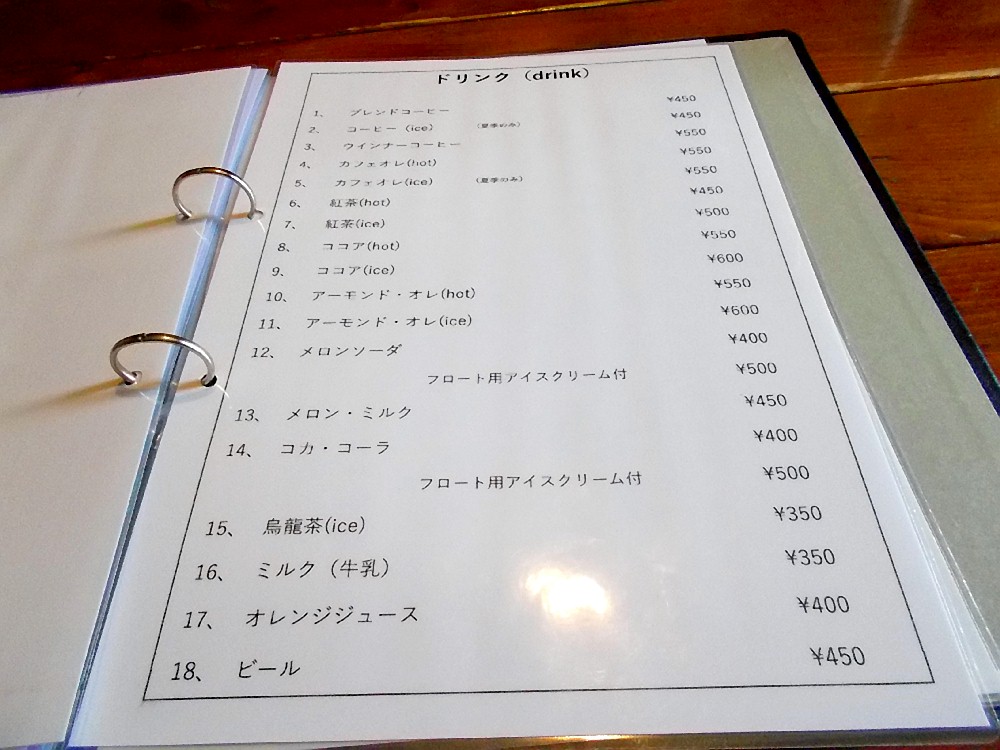 ドリンク（drink）
1、 ブレンドコーヒー ¥450
2、 コーヒー（ice） （夏季のみ） ¥450
3、 ウインナーコーヒー ¥550
4、 カフェオレ(hot) ¥550
5、 カフェオレ(ice) （夏季のみ） ¥550
6、 紅茶(hot) ¥450
7、 紅茶(ice) ¥500
8、 ココア(hot) ¥550
9、 ココア(ice) ¥600
10、 アーモンド・オレ(hot) ¥550
11、 アーモンド・オレ(ice) ¥600
12、 メロンソーダ ¥400
フロート用アイスクリーム付 ¥500
13、 メロン・ミルク ¥450
14、 コカ・コーラ ¥400
フロート用アイスクリーム付 ¥500
15、 烏龍茶(ice) ¥350
16、 ミルク（牛乳） ¥350
17、 オレンジジュース ¥400
18、 ビール ¥450